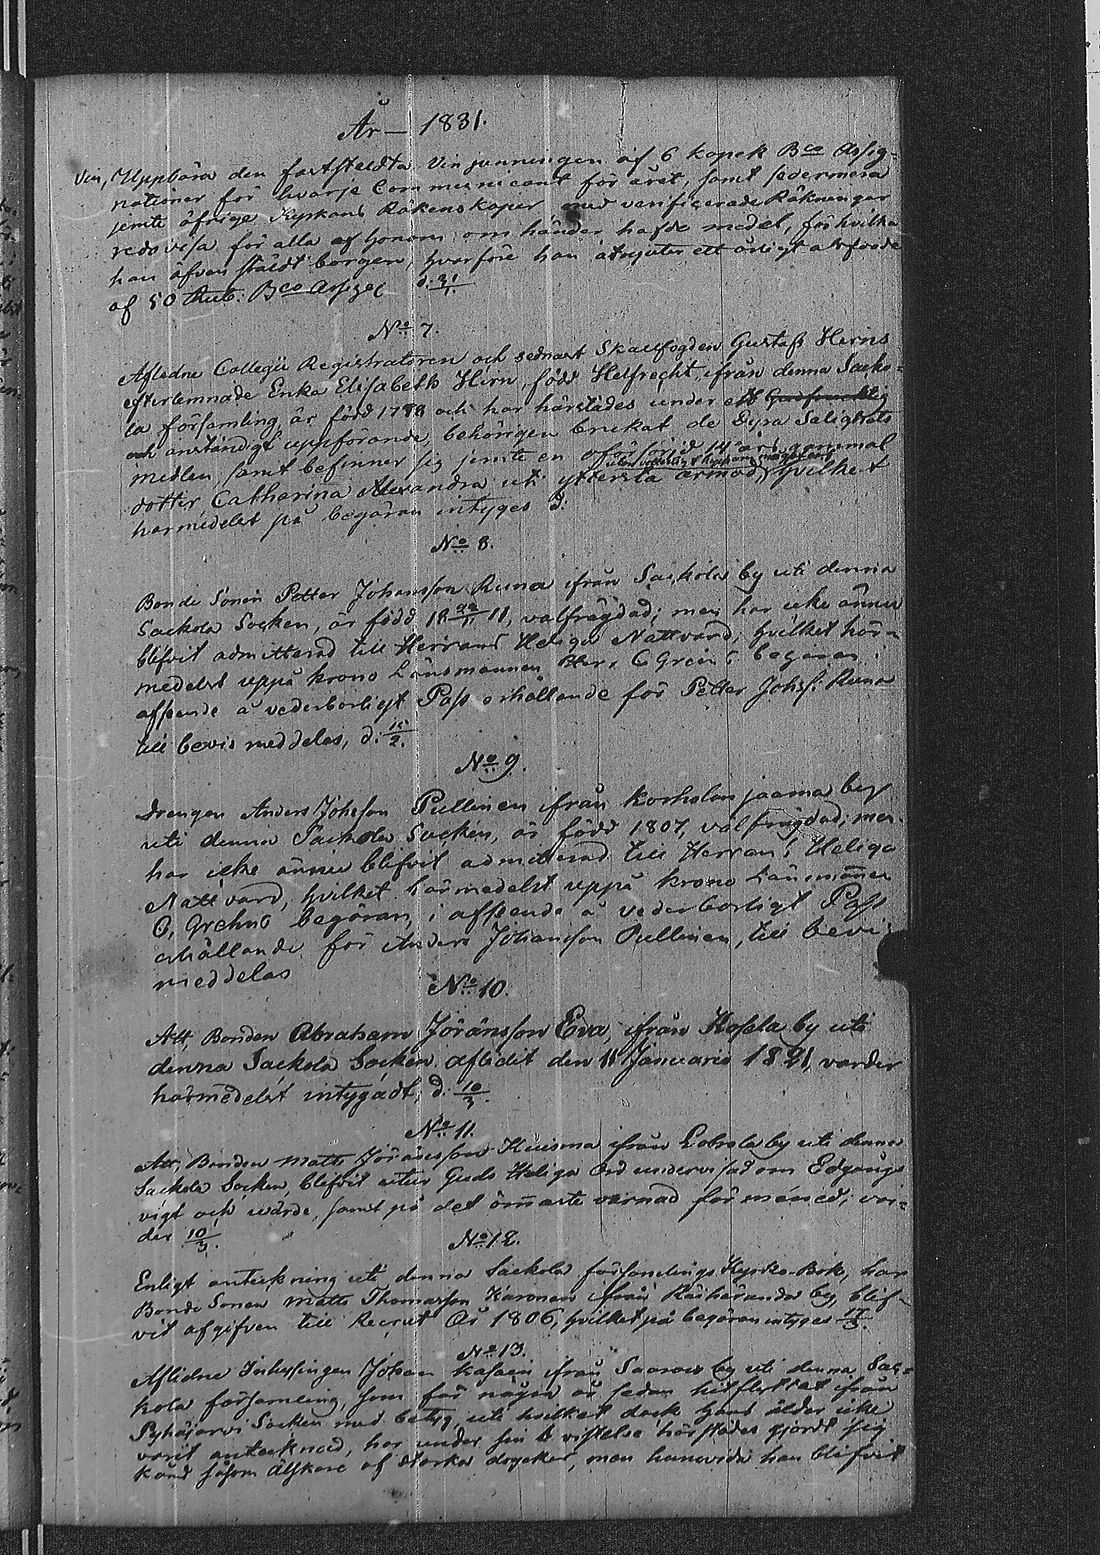 År — 1831.
Vin, Uppbära den fastställda Vin penningen af 6 kopek Bco Assig-
nationer för hvarje Communicant för året, samt sedermera
jemte öfrige Kyrkans Räkenskaper med verificerade Räkningar
redovisa för alla af honom om händer hafde medel, för hvilka
han äfven ställdt borgen, hvarföre han åtnjuter ett årligt arfvode
af 50 Rub. Bco Assign. d. 31/1.
No 7.
Afledne Collegii Registratoren och sednast Skallfogden Gustaf Hirns
efterlemnade Enka Elisabeth Hirn, född Helfrecht, ifrån denna Sacko-
la församling, är född 1788 och har härstädes under ett
och anständigt uppförande, behörigen brukat de Dyra Salighets
medlen, samt befinner sig jemte en 14 års gammal
dotter Catharina Alexandra uti yttersta armod, hvilket
härmedelst på begäran intyges d.
No 8.
Bonde Sonen Petter Johansson Runa ifrån Sackola by uti denna
Sackola Socken, är född 18 11, välfrägdad; men har icke ännu
blifvit admitterad till Herrans Heliga Nattvard, hvilket här-
medelst uppå krono Länsmannen Herr C Grehns begäran i
afseende å vederborligt Pass erhållande för Petter Johss: Runa
till bevis meddelas, d. 15/2.
No 9.
Drengen Anders Johsson Pullinen ifrån Korholanjaama by
uti denna Sackola Socken, är född 1807, välfrägdad; men
har icke ännu blifvit admitterad till Herrans Heliga
Nattvard, hvilket härmedelst uppå krono Länsmannen
C, Grehns begäran, i afseende å vederborligt Pass
erhållande för Anders Johansson Pullinen, till bevis
meddelas
No 10.
Att, Bonden Abraham Jöransson Eva, ifrån Kossla by uti
denna Sackola Socken, aflidit den 11 Januarii 1821, varder
härmedelst intygadt; d. 10/3.
No 11.
Att, Bonden Matts Jöransson Kuisma ifrån Lohola by uti denna
Sackola Socken, blifvit utur Guds Heliga Ord undervisad om Edgångs
vigt och wärde, samt på det ömmaste varnad för mened; var-
der 10/3.
No 12.
Enligt anteckning uti denna Sackola församlings Kyrko-Bok, har
Bonde Sonen Matts Thomasson Karonen ifrån Räihäranda by, blif-
vit afgifven till Recrut År 1806, hvilket på begäran intyges 17/3.
No 13.
Aflidne Inhysingen Johan ifrån Saarois by uti denna Sac-
kola församling, som för några år sedan hitflyttat ifrån
Pyhäjärvi Socken med betyg, uti hvilket dock hans ålder icke
varit antecknad, har under sin vistelse härstädes gjordt sig
känd såsom älskare af starka drycker, men huruvida han blifvit